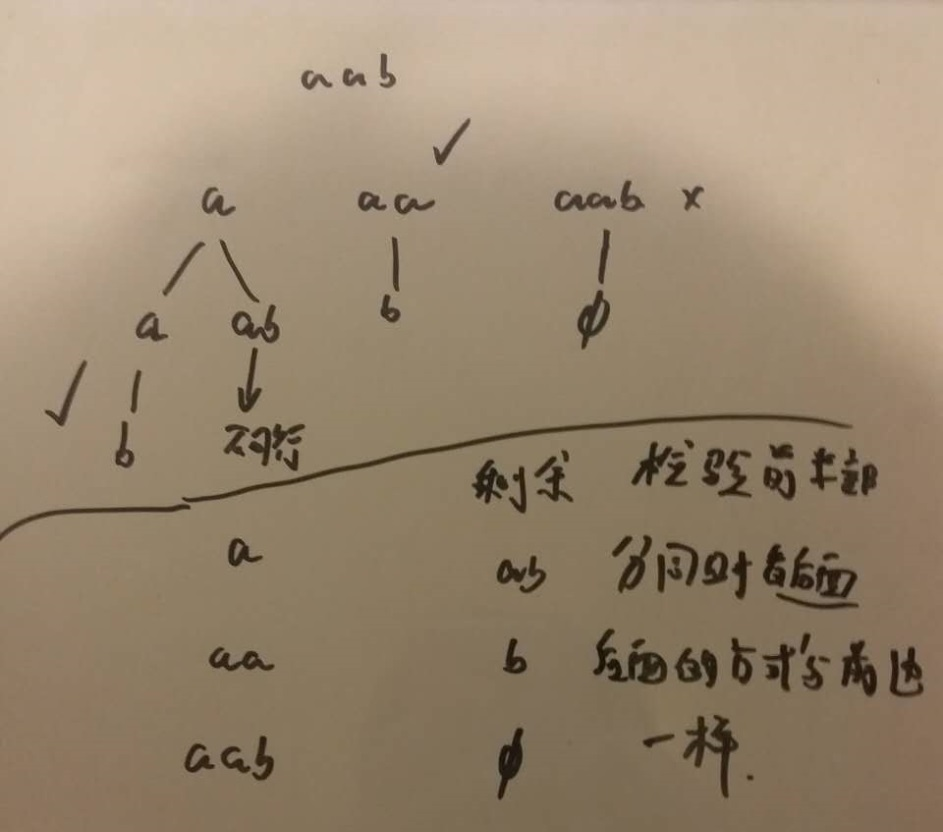 aab
a aa aab x
a ab b ϕ
b 不可行
剩余 检验前半部
a ab 分同时看后面
aa b 后面的方式与前边
aab ϕ 一样.